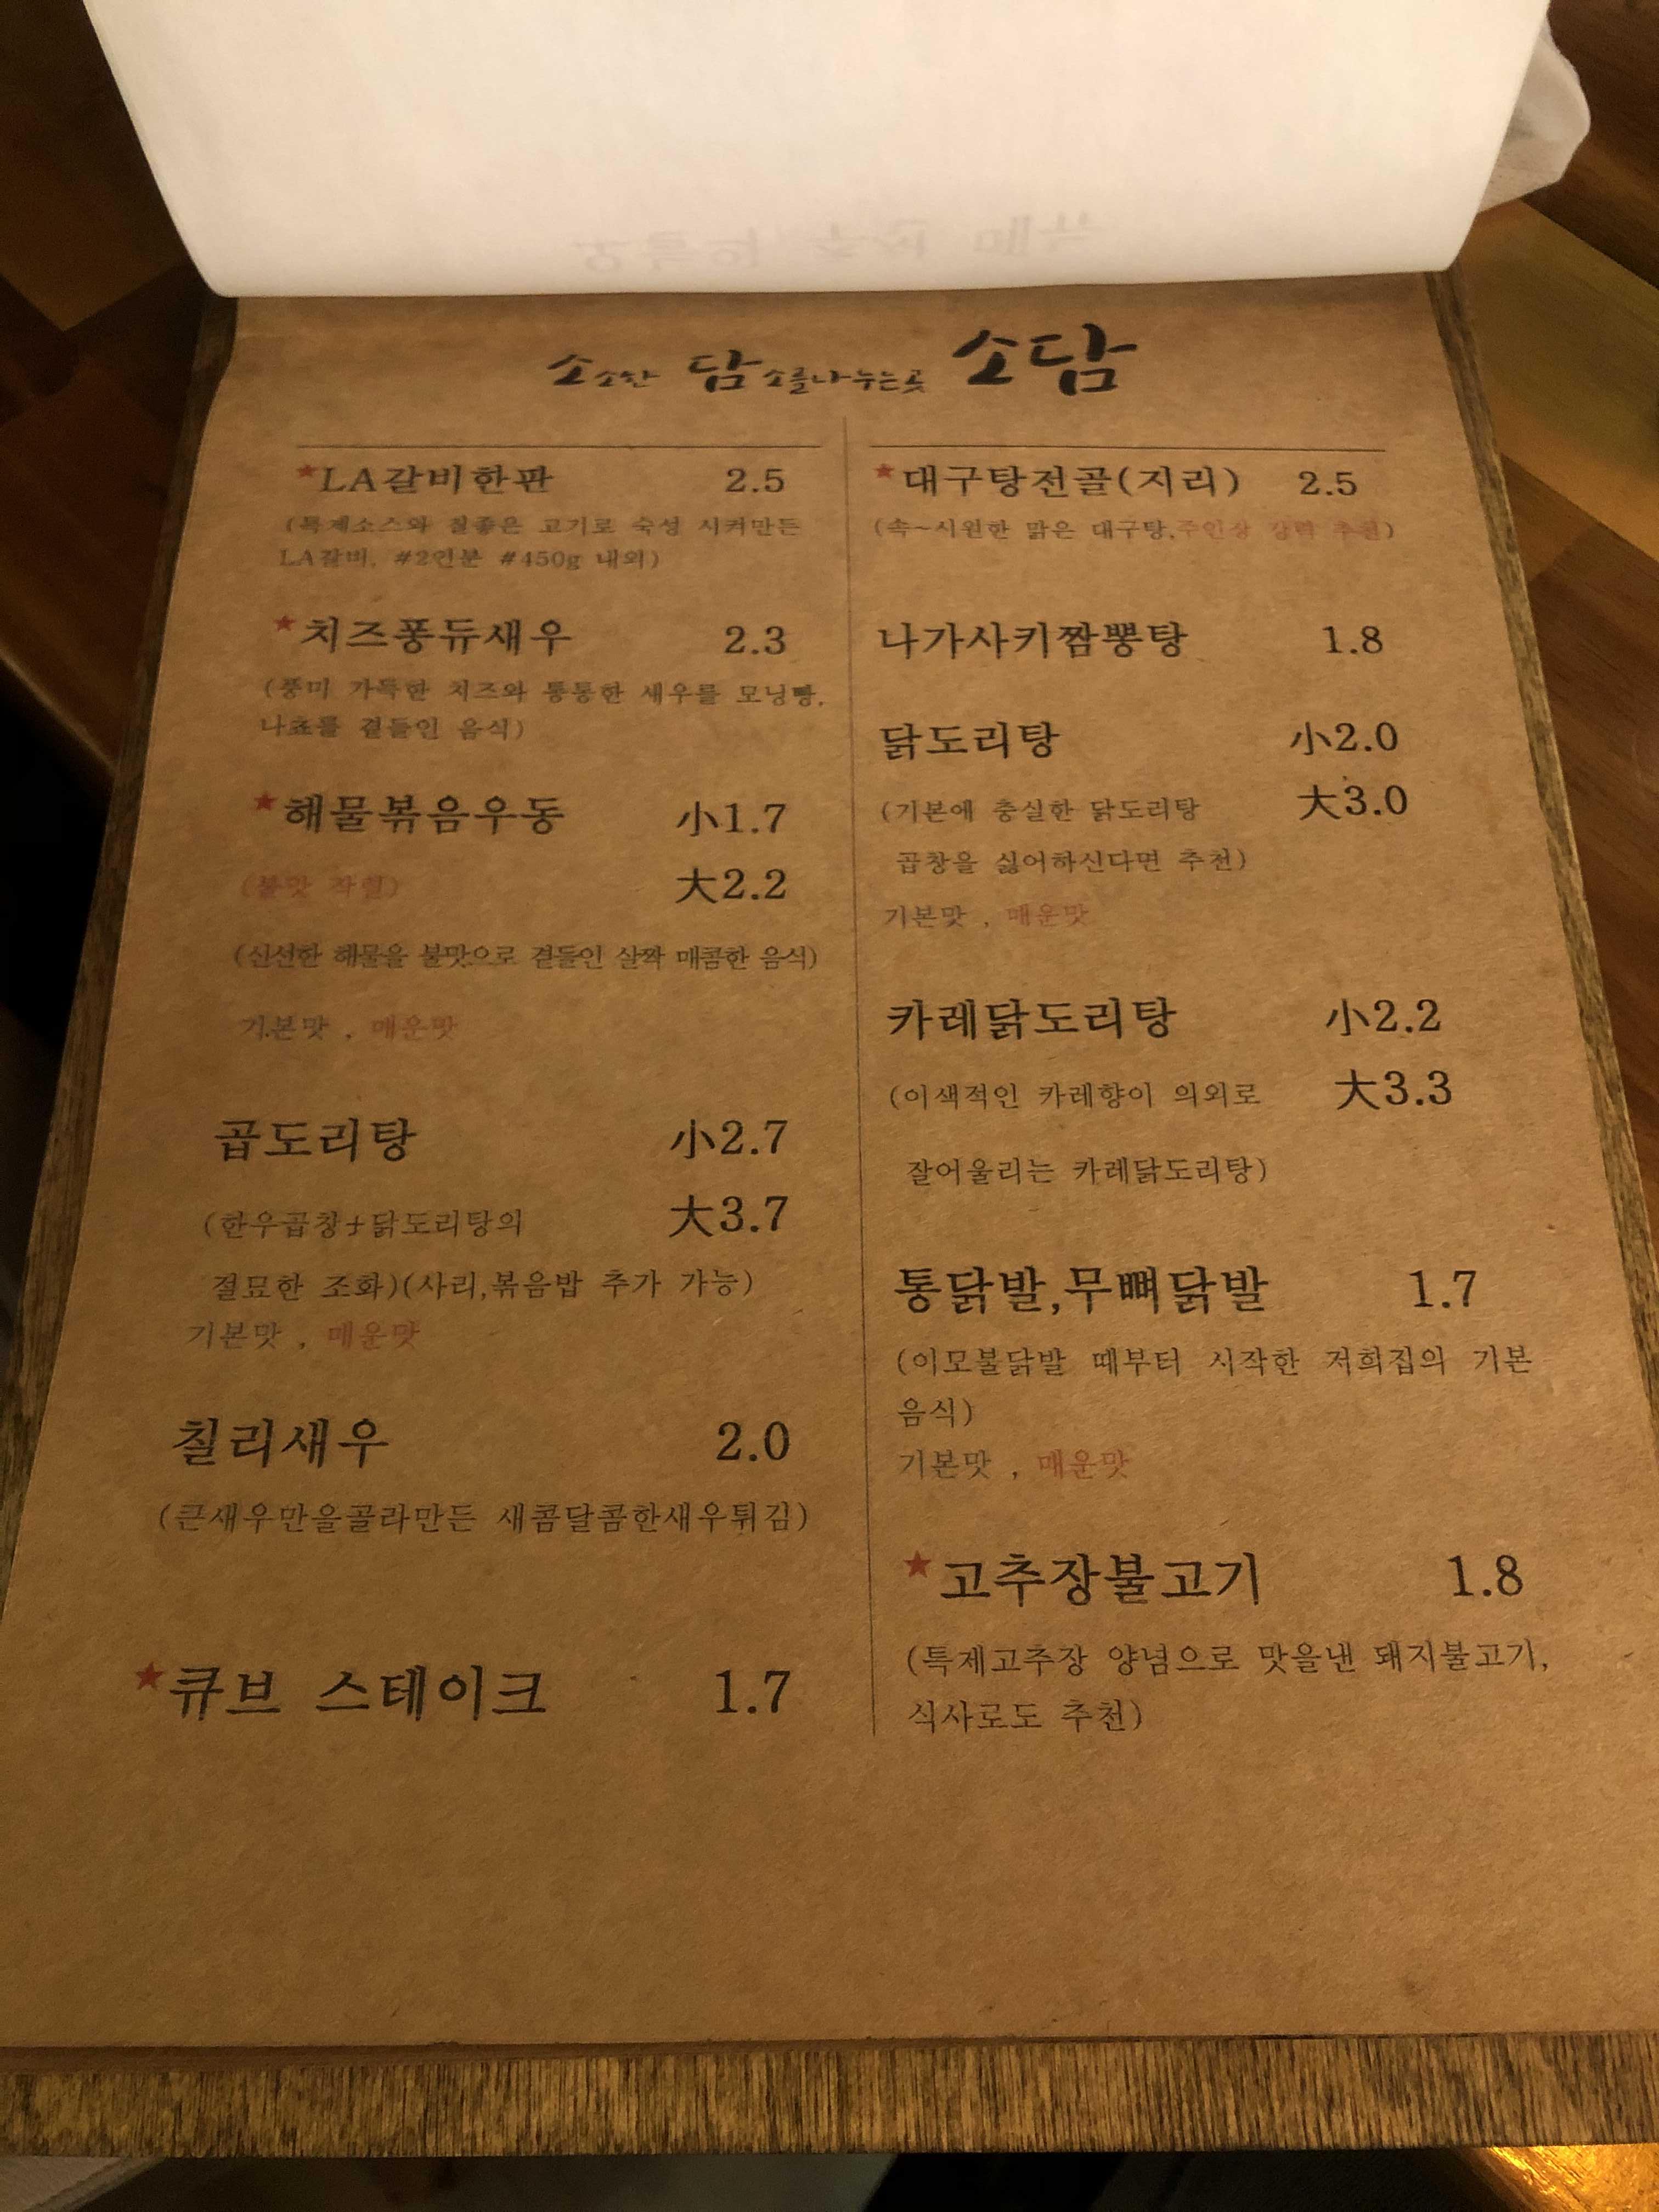 소소한 담소를나누는곳 소담
★LA갈비한판 2.5
(특제소스와 질좋은 고기로 숙성 시켜만든
LA갈비, #2인분 #450g 내외)
★치즈퐁듀새우 2.3
(풍미 가득한 치즈와 통통한 새우를 모닝빵,
나쵸를 곁들인 음식)
★해물볶음우동 小1.7
(불맛 작렬) 大2.2
(신선한 해물을 불맛으로 곁들인 살짝 매콤한 음식)
기본맛 , 매운맛
곱도리탕 小2.7
(한우곱창+닭도리탕의 大3.7
절묘한 조화)(사리,볶음밥 추가 가능)
기본맛 , 매운맛
칠리새우 2.0
(큰새우만을골라만든 새콤달콤한새우튀김)
★큐브 스테이크 1.7
★대구탕전골(지리) 2.5
(속~시원한 맑은 대구탕,주인상 강력 추천)
나가사키짬뽕탕 1.8
닭도리탕 小2.0
(기본에 충실한 닭도리탕 大3.0
곱창을 싫어하신다면 추천)
기본맛 , 매운맛
카레닭도리탕 小2.2
(이색적인 카레향이 의외로 大3.3
잘어울리는 카레닭도리탕)
통닭발,무뼈닭발 1.7
(이모불닭발 때부터 시작한 저희집의 기본
음식)
기본맛 , 매운맛
★고추장불고기 1.8
(특제고추장 양념으로 맛을낸 돼지불고기,
식사로도 추천)